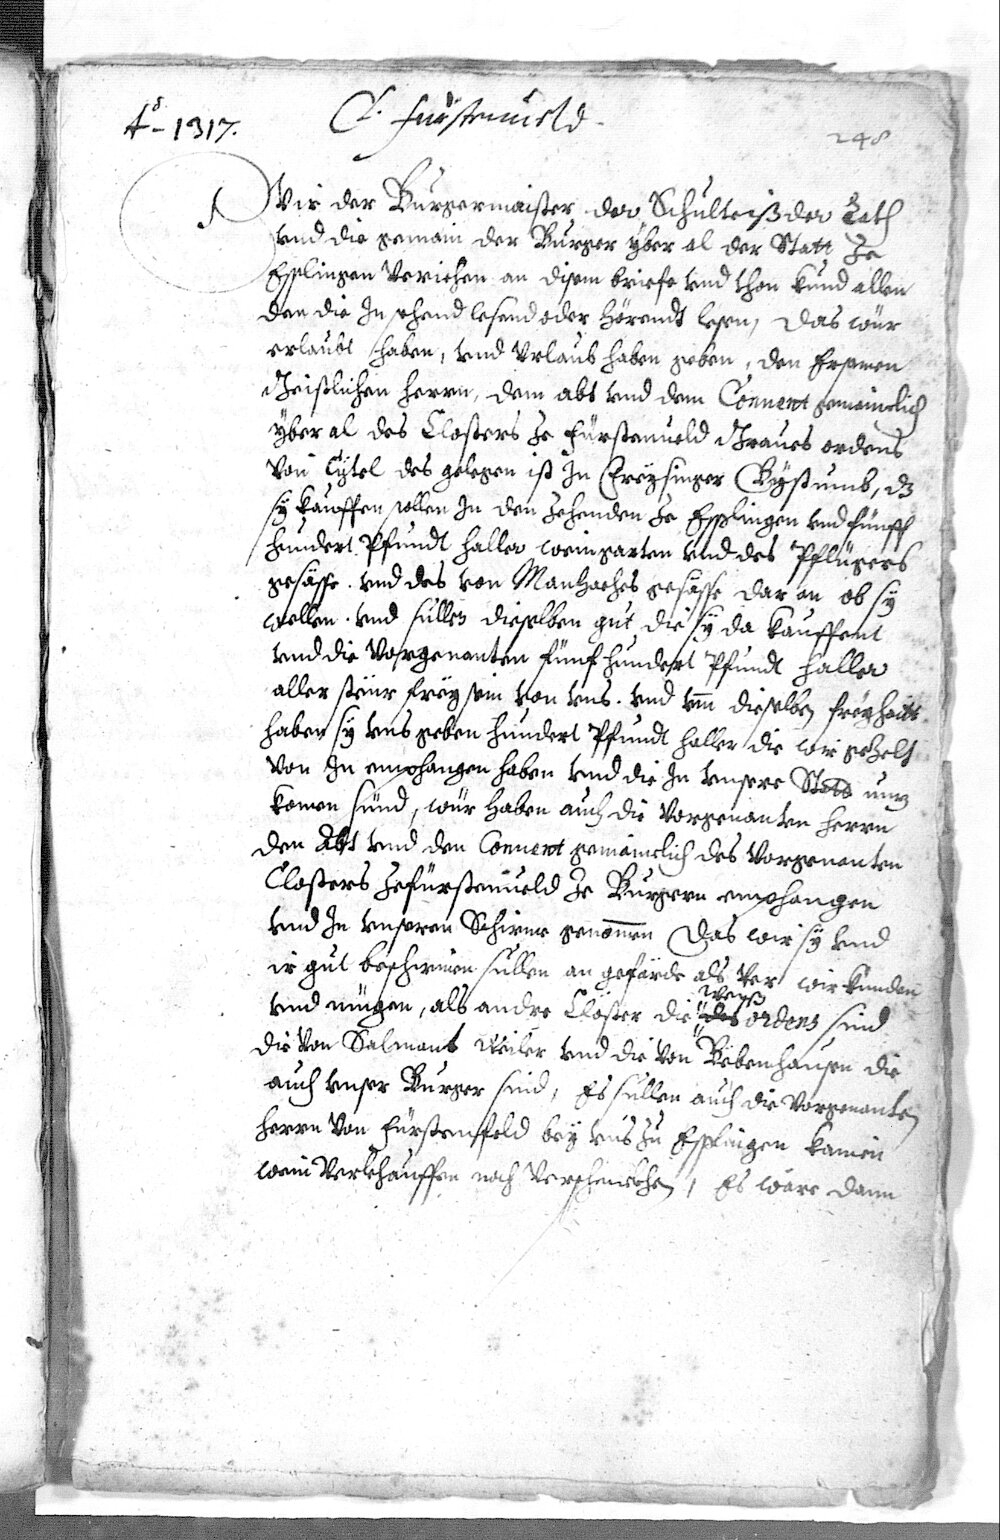 Aº 1317.
Cl. Fürstenueld.
248
Wir der Burgermaister der Schulteiß der Rath
vnd die gemain der Burger yber al der Statt Ze
Esslingen Veriehen an disem briefe vnd thon kund allen
den die In sehend lesend oder hörendt lesen, Das wür
erlaubt haben, vnd Vrlaub haben geben, den Ersamen
Geistlichen herrn, dem abt vnd dem Conuent gemainclich
yber al des Closters Ze Fürstenueld Graues ordens
von Cytel des gelegen ist In Freysinger Bystumb, dz
sy kauffen sollen In den Zehenden Ze Esslingen vnd fünff
hundert Pfundt haller weingarten vnd des Pflügers
gesässe. vnd des von Manhaches gesässe dar an ob sy
wellen. vnd sullen dieselben gut die sy da kauffent
vnd die Vorgenanten fünf hundert Pfundt haller
aller steur frey sein von vns. vnd vm dieselben freyheitt
haben sy vns geben hundert Pfundt haller die wir gezelt
von In empfangen haben vnd die In vnsere Statt nutz
komen sünd, wür haben auch die Vorgenanten herrn
den Abt vnd den Conuent gemainclich des Vorgenanten
Closters Zefürstenueld Ze Burgern empfangen
vnd In vnseren Schirme genommen Das wir sy vnd
ir gut beschirmen sullen an gefärde als Ver wir künden
vnd mügen, als andre Clöster die weyß des ordens sind
die von Salmans weiler vnd die von Bebenhausen die
auch vnser Burger sind, Es sullen auch die Vorgenanten
herrn von Fürstenfeld bey vns Zu Esslingen kainen
wein Verkhauffen noch Verschenckhen, Es wäre dann